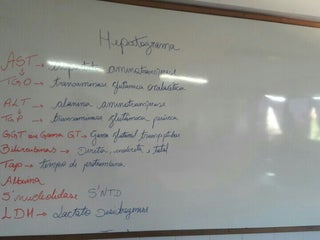 Hepatograma
AST → aminotransferase
TGO → transaminase glutâmica oxalacética
ALT → alanina aminotransferase
TGP → transaminase glutâmica pirúvica
GGT ou Gama GT → Gama glutamil transpeptidase
Bilirrubinas → Direta, indireta e total
Tap → tempo de protrombina
Albumina
5'nucleotidase 5'NTD
LDH → Lactato Desidrogenase